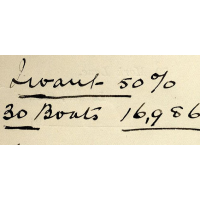 I want 50%
30 Boats 16,986